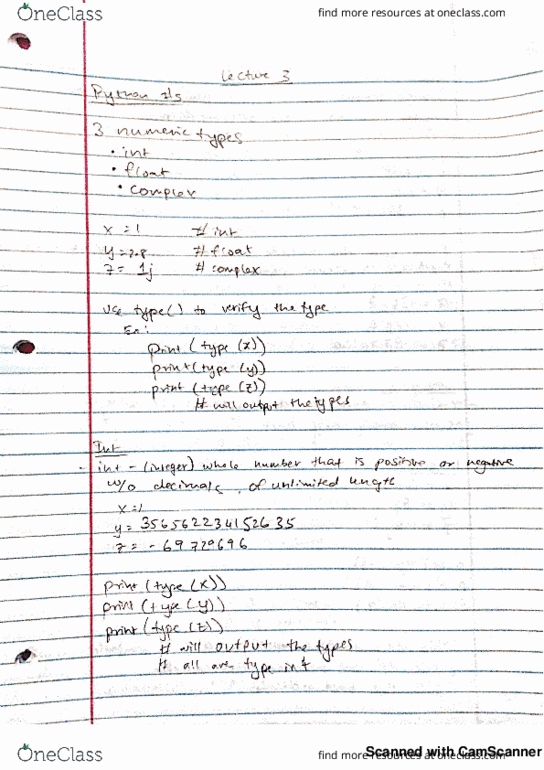 OneClass
find more resources at oneclass.com
Lecture 3
Python #s
3 numeric types
• int
• float
• complex
x = 1 # int
y = 2.8 # float
z = 1j # complex
use type() to verify the type
Ex:
print (type (x))
print (type (y))
print (type (z))
# will output the types
Int
- int - (integer) whole number that is positive or negative
w/o decimals, of unlimited length
x = 1
y = 3565622341526 35
z = - 69729696
print (type (x))
print (type (y))
print (type (z))
# will output the types
# all are type int
OneClass
find more resources at oneclass.com
Scanned with CamScanner